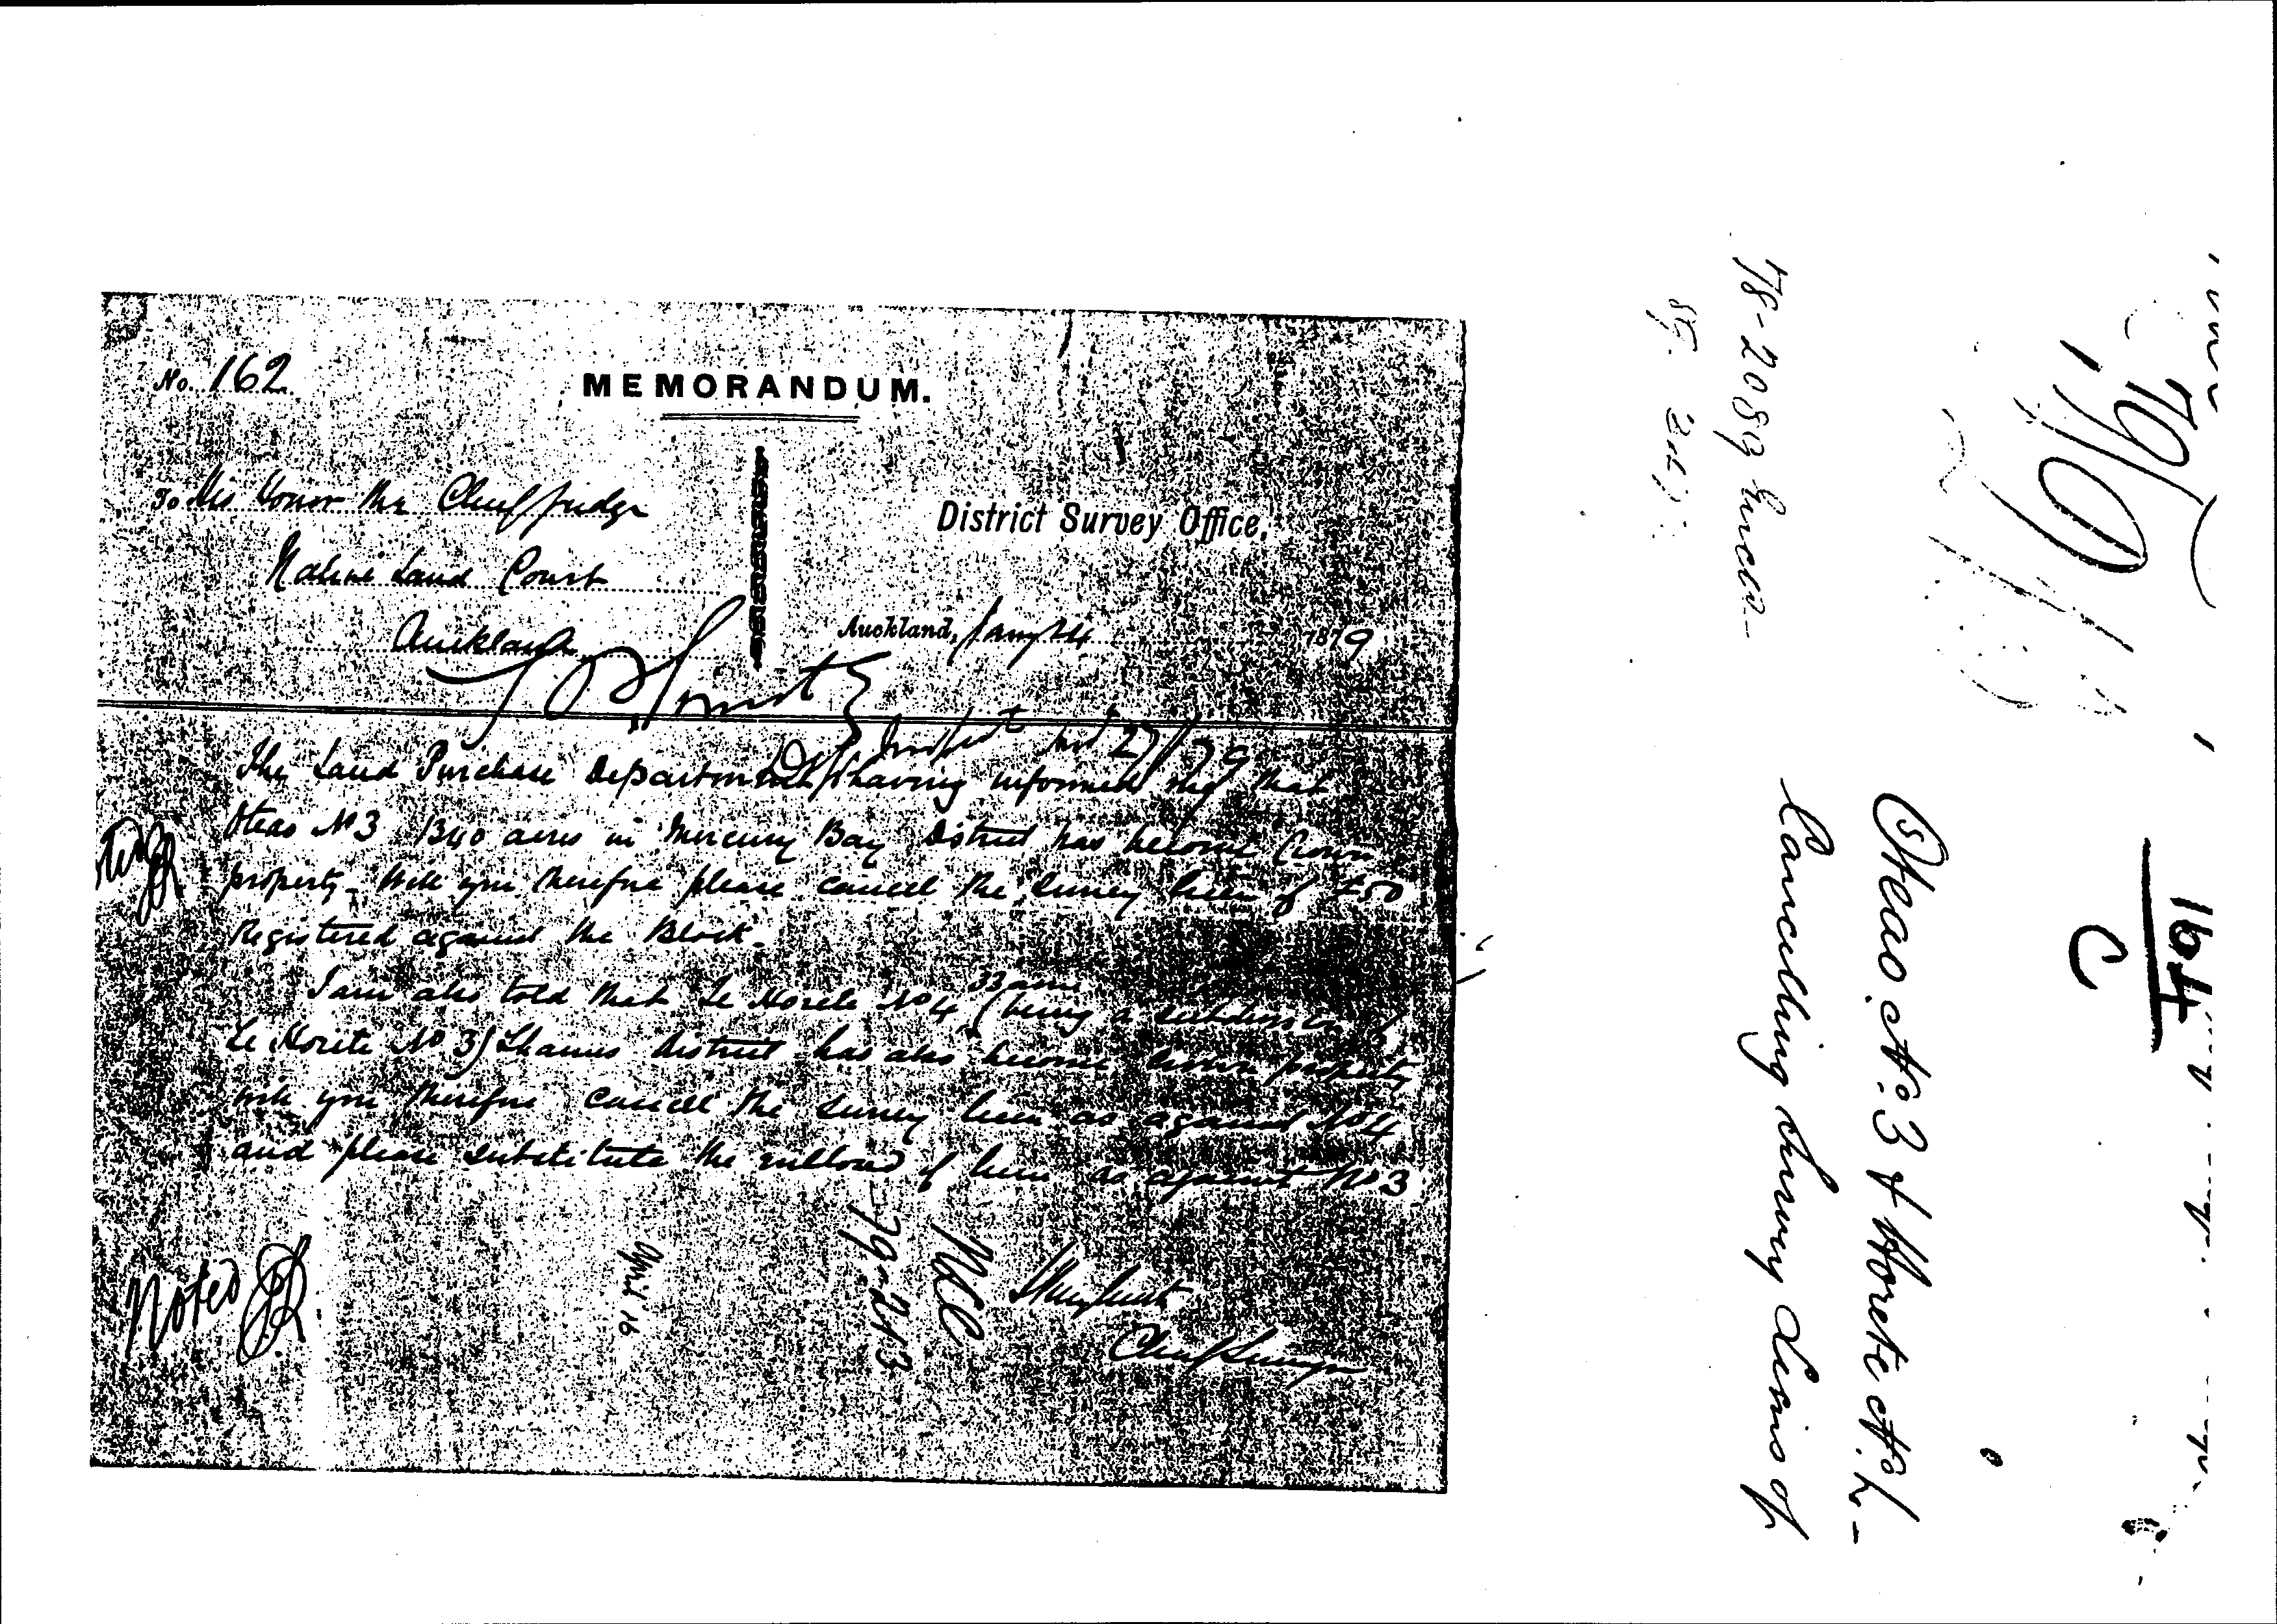 No. 162
MEMORANDUM.
To His Honor the Chief Judge
Native Land Court
Auckland
District Survey Office,
Auckland, Jany 24 1879
The Land Purchase Department having informed me that
Oteao No 3 1340 acres in Mercury Bay District has become Crown
property. Will you therefore please cancel the survey lien of £50
Registered against the Block.
I am also told that Te Horete No 4 33 acres (being a subdivision of
Te Horete No 3) Thames District has also become Crown property
will you therefore cancel the survey lien as against No 4
and please substitute the of lien as against No 3
Chief Surveyor
Noted
April 16
79-213
NLC
Oteao No. 3 & Horete No. 4 -
Cancelling Survey Liens of
164
C
78-2089